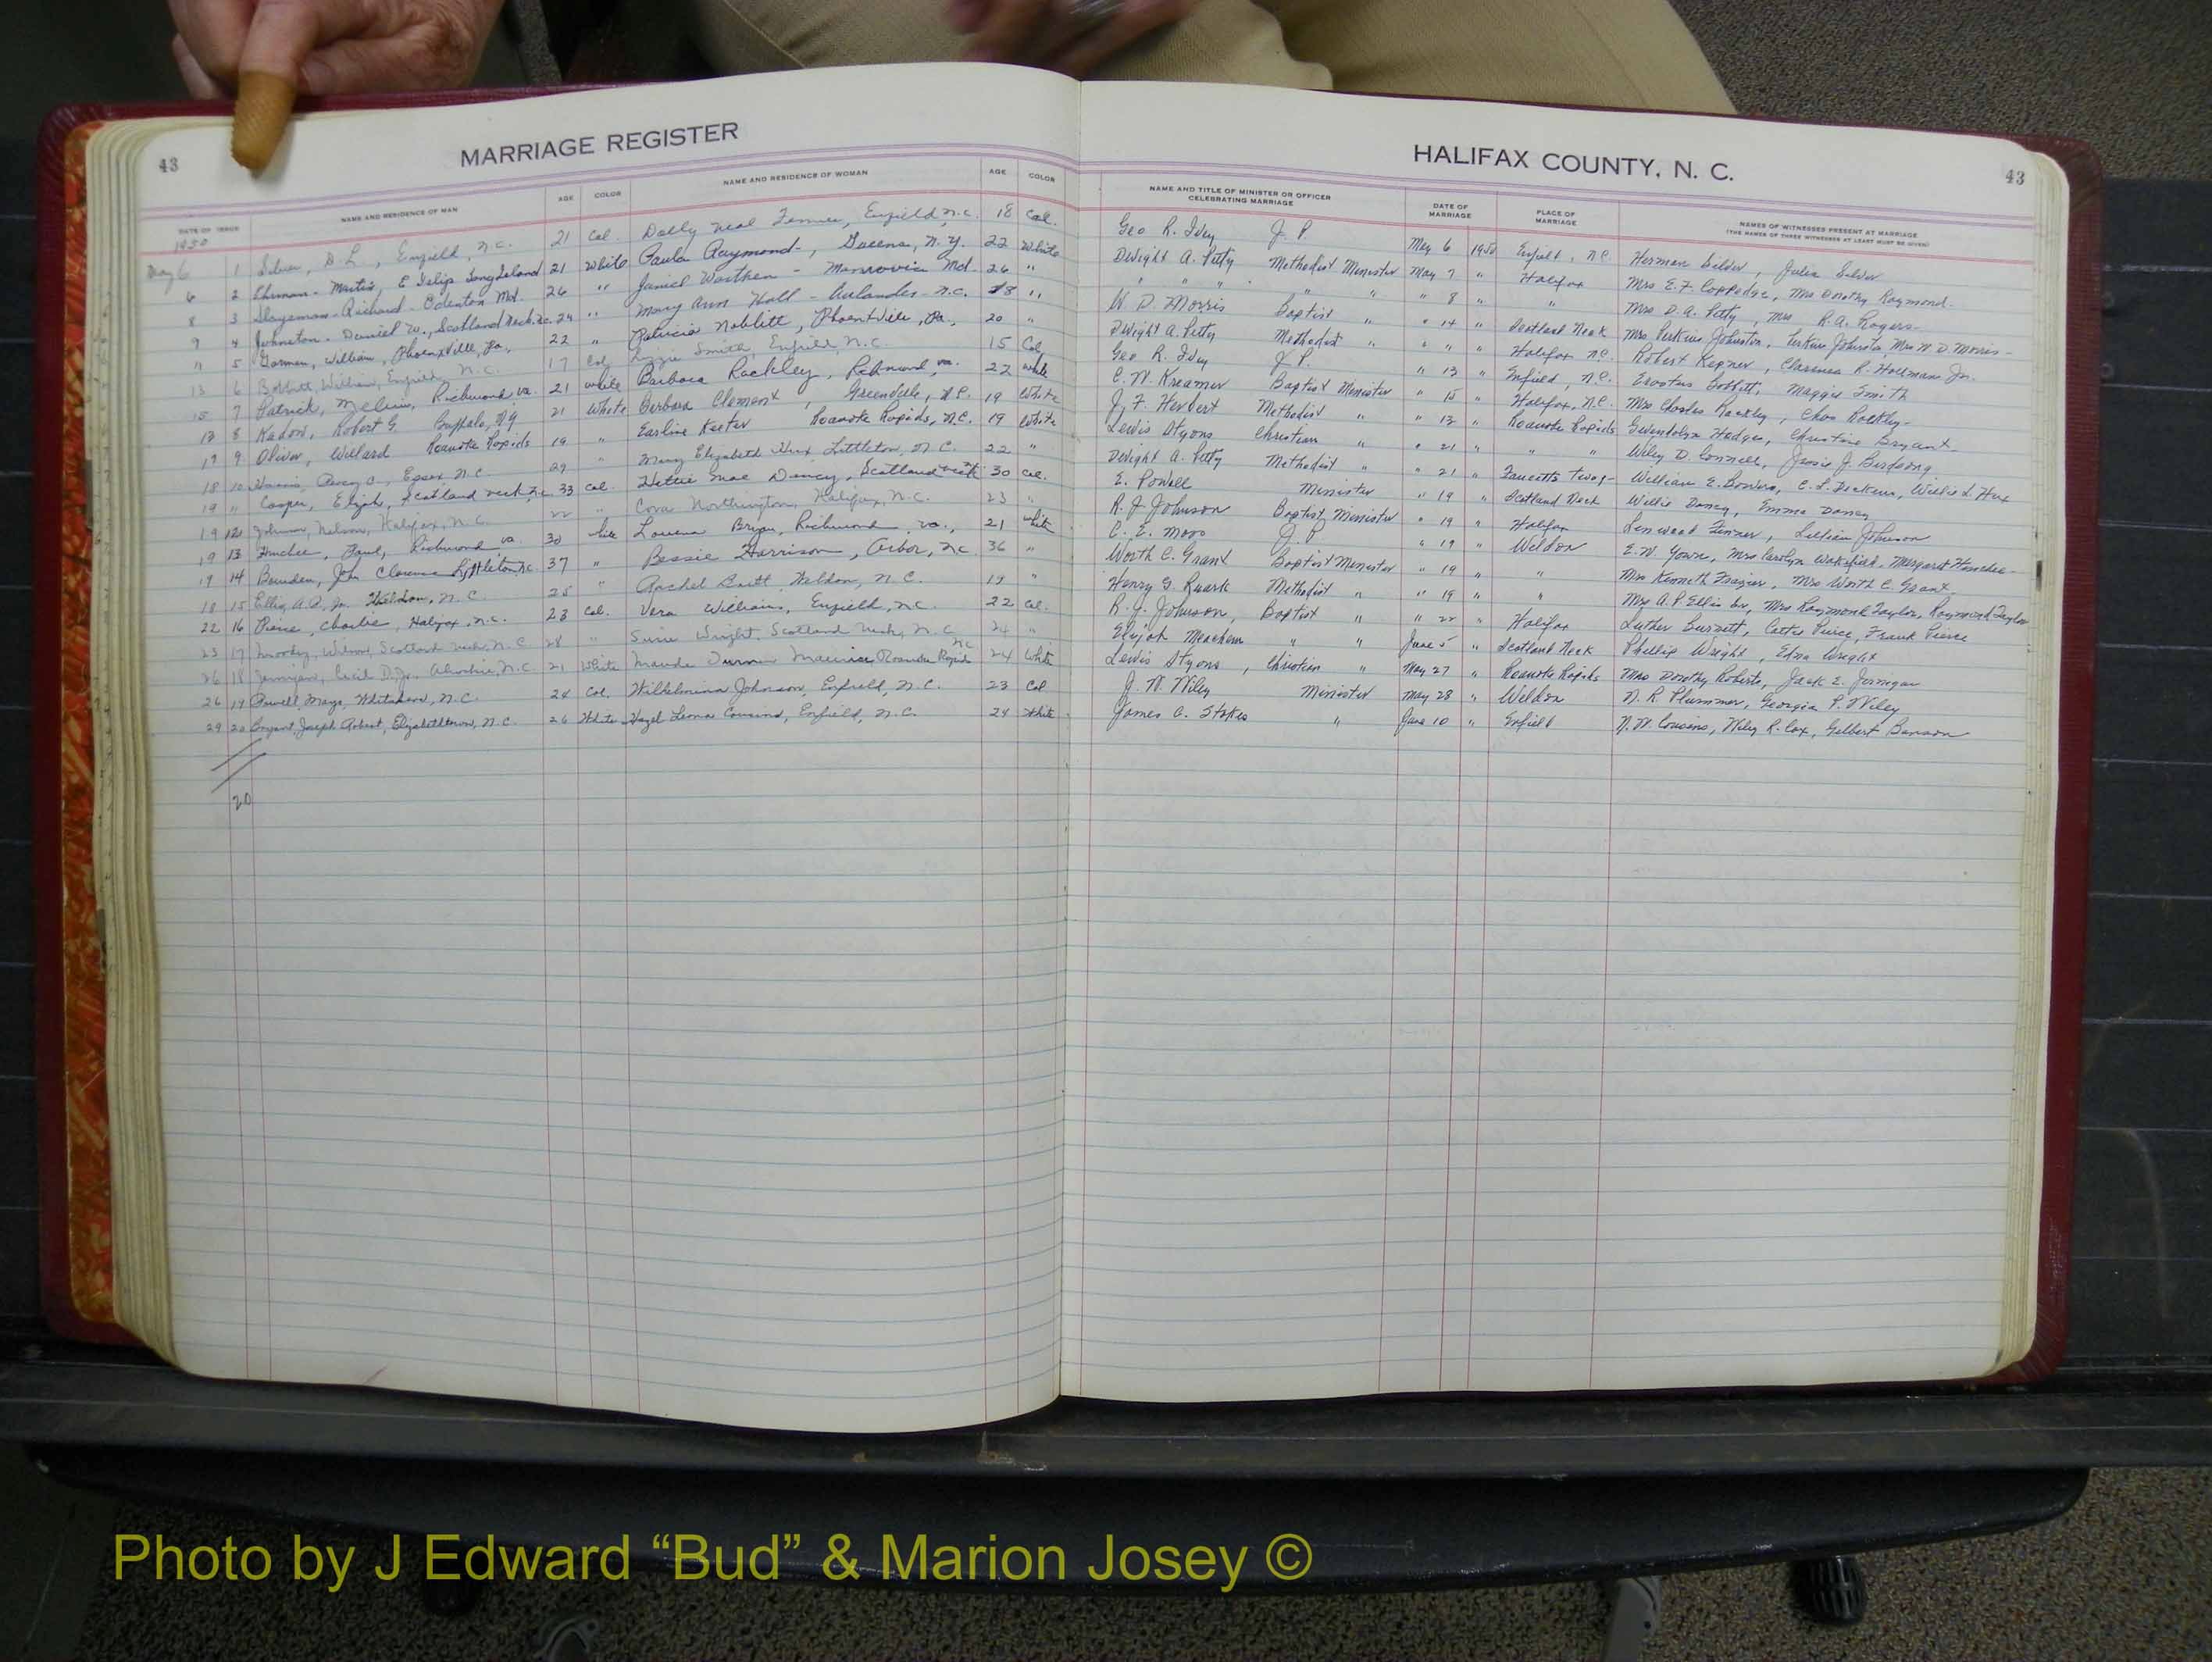 43 MARRIAGE REGISTER
DATE OF ISSUE NAME AND RESIDENCE OF MAN AGE COLOR NAME AND RESIDENCE OF WOMAN AGE COLOR
1950
May 6 1 Silver, D L, Enfield, N.C. 21 Col. Dolly Neal Fenner, Enfield, N.C. 18 Col.
6 2 Ehrman - E Islip Long Island 21 White Paula Raymond -, Queens, N.Y. 22 White
8 3 Slayeman - Richard - Odenton Md. 26 " Janiel - Monrovia Md. 26 "
9 4 Johnston - Daniel W., Scotland Neck N.C. 24 " Mary Ann Hall - Aulander - N.C. 18 "
" 5 Gorman, William, Phoenixville, Pa., 22 " Patricia Noblitt, Phoenixville, Pa., 20 "
13 6 Bobbitt, William, Enfield, N.C. 17 Col Lizzie Smith, Enfield, N.C. 15 Col
15 7 Patrick, Melvin, Richmond Va. 21 White Barbara Rackley, Richmond, Va. 22 White
13 8 Robert G. Buffalo, N.Y. 21 White Barbara Clement, N.C. 19 White
17 9 Oliver, Willard Roanoke Rapids 19 " Earline Keeter Roanoke Rapids, N.C. 19 White
18 10 Harris, Percy C., Essex, N.C. 29 " Mary Elizabeth Hux Littleton, N.C. 22 "
19 11 Cooper, Elijah, Scotland Neck N.C. 33 Col. Hettie Mae Dancy, Scotland Neck 30 Col.
19 12 Johnson, Nelson, Halifax, N.C. 22 " Cora Northington, Halifax, N.C. 23 "
19 13 Hinchee, Paul, Richmond Va. 30 White Louena Bryan, Richmond Va., 21 White
19 14 Bowden, John Clarence Littleton N.C. 37 " Bessie Harrison, Arbor, N.C. 36 "
18 15 Ellis, A.P. Jr. Weldon, N.C. 25 " Rachel Britt, Weldon, N.C. 19 "
22 16 Pierce, Charlie, Halifax, N.C. 23 Col. Vera Williams, Enfield, N.C. 22 Col.
23 17 Moody, Wilson, Scotland Neck, N.C. 28 " Susie Wright, Scotland Neck, N.C. 24 "
26 18 Jernigan, Cecil D. Jr. Ahoskie, N.C. 21 White Maude Roanoke Rapids N.C. 24 White
26 19 Powell Mayo, Whitakers, N.C. 24 Col. Wilhelmina Johnson, Enfield, N.C. 23 Col
29 20 Bryant, Joseph Robert, Elizabethtown, N.C. 26 White Hazel Leona Cousins, Enfield, N.C. 24 White
20
HALIFAX COUNTY, N. C. 43
NAME AND TITLE OF MINISTER OR OFFICER CELEBRATING MARRIAGE DATE OF MARRIAGE PLACE OF MARRIAGE NAMES OF WITNESSES PRESENT AT MARRIAGE
(THE NAMES OF THREE WITNESSES AT LEAST MUST BE GIVEN)
Geo R. Ivey J. P. May 6 1950 Enfield, N.C. Herman Silver, Julia Silver
Dwight A. Petty Methodist Minister May 7 " Halifax Mrs E. F. Coppedge, Mrs Dorothy Raymond.
" " " " " " 8 " " Mrs D. A. Petty, Mrs R. A. Rogers
W. D. Morris Baptist " " 14 " Scotland Neck Mrs Perkins Johnston, Perkins Johnston, Mrs W. D. Morris
Dwight A. Petty Methodist " " " " Halifax N.C. Robert Kepner, Clarence R. Holman Jr.
Geo R. Ivey J. P. " 13 " Enfield, N.C. Erastus Bobbitt, Maggie Smith
C. W. Kreamer Baptist Minister " 15 " Halifax, N.C. Mrs Charles Rackley, Chas Rackley
J. F. Herbert Methodist " " 13 " Roanoke Rapids Gwendolyn Hodges, Christine Bryant
Lewis Styons Christian " " 21 " " Wiley D. Connell, Jessie J. Birdsong
Dwight A. Petty Methodist " " 21 " Faucetts Twsp William E. Bowers, C. L. Dickens, Willie L. Hux
E. Powell Minister " 19 " Scotland Neck Willie Dancy, Emma Dancy
R. J. Johnson Baptist Minister " 19 " Halifax Linwood Fenner, Lillian Johnson
C. E. Moss J. P. " 19 " Weldon E. W. Gowns, Mrs Carolyn Wakefield, Margaret Hinchee
Worth C. Grant Baptist Minister " 19 " " Mrs Kenneth Frazier, Mrs Worth C. Grant
Henry G. Ruark Methodist " " 19 " " Mrs A. P. Ellis Sr, Mrs Raymond Taylor, Raymond Taylor
R. J. Johnson, Baptist " " 22 " Halifax Luther Burnett, Cottie Pierce, Frank Pierce
Elijah Meachem " " June 5 " Scotland Neck Phillip Wright, Edna Wright
Lewis Styons, Christian " May 27 " Roanoke Rapids Miss Dorothy Roberts, Jack E. Jernigan
J. W. Wiley Minister May 28 " Weldon N. R. Plummer, Georgia P. Wiley
James G. Stokes " June 10 " Enfield N. W. Cousins, Wiley R. Cox, Gilbert Benson
Photo by J Edward “Bud” & Marion Josey ©